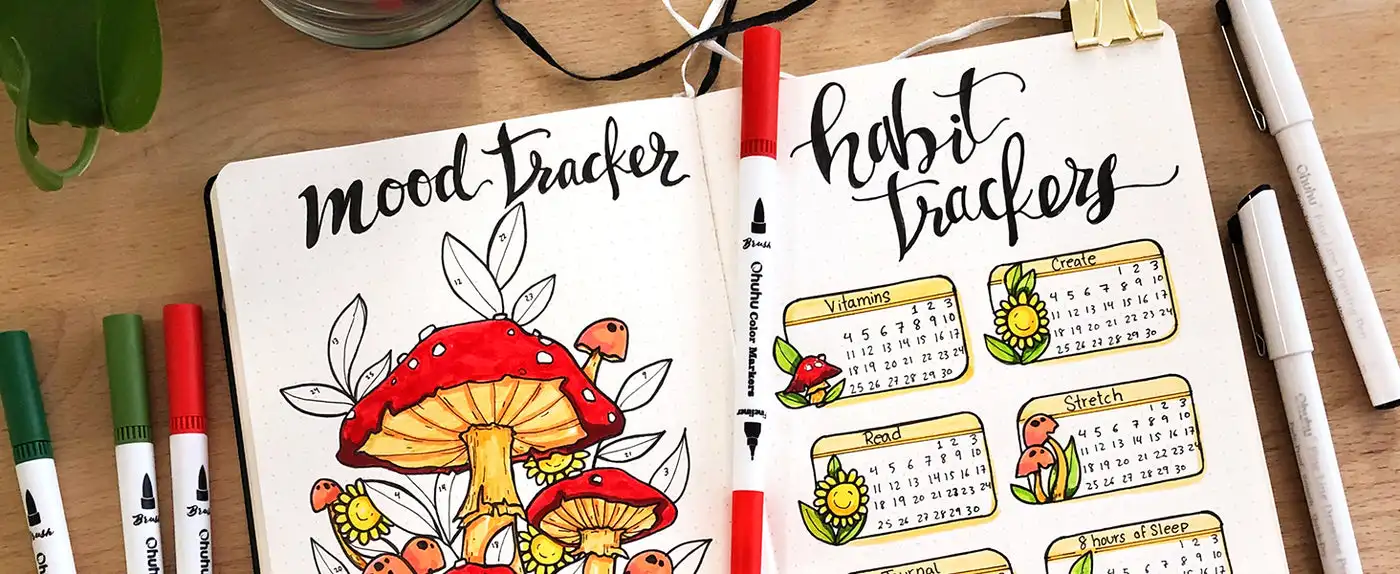 mood tracker
22
12
23
13
25
29
9
3
4
14
18
20
habit
trackers
Vitamins
1 2 3
4 5 6 7 8 9 10
11 12 13 14 15 16 17
18 19 20 21 22 23 24
25 26 27 28 29 30
Create
1 2 3
4 5 6 7 8 9 10
11 12 13 14 15 16 17
18 19 20 21 22 23 24
25 26 27 28 29 30
Read
1 2 3
4 5 6 7 8 9 10
11 12 13 14 15 16 17
18 19 20 21 22 23 24
25 26 27 28 29 30
Stretch
1 2 3
4 5 6 7 8 9 10
11 12 13 14 15 16 17
18 19 20 21 22 23 24
25 26 27 28 29 30
Journal
8 hours of Sleep
1 2 3
4 5 6 7 8 9 10
Brush
Ohuhu Color Markers
Fineliner
Brush
Ohuhu
Brush
Ohuhu
Brush
Ohuhu
Ohuhu Fine Line Drawing Pen
Ohuhu Fine Line Drawing Pen